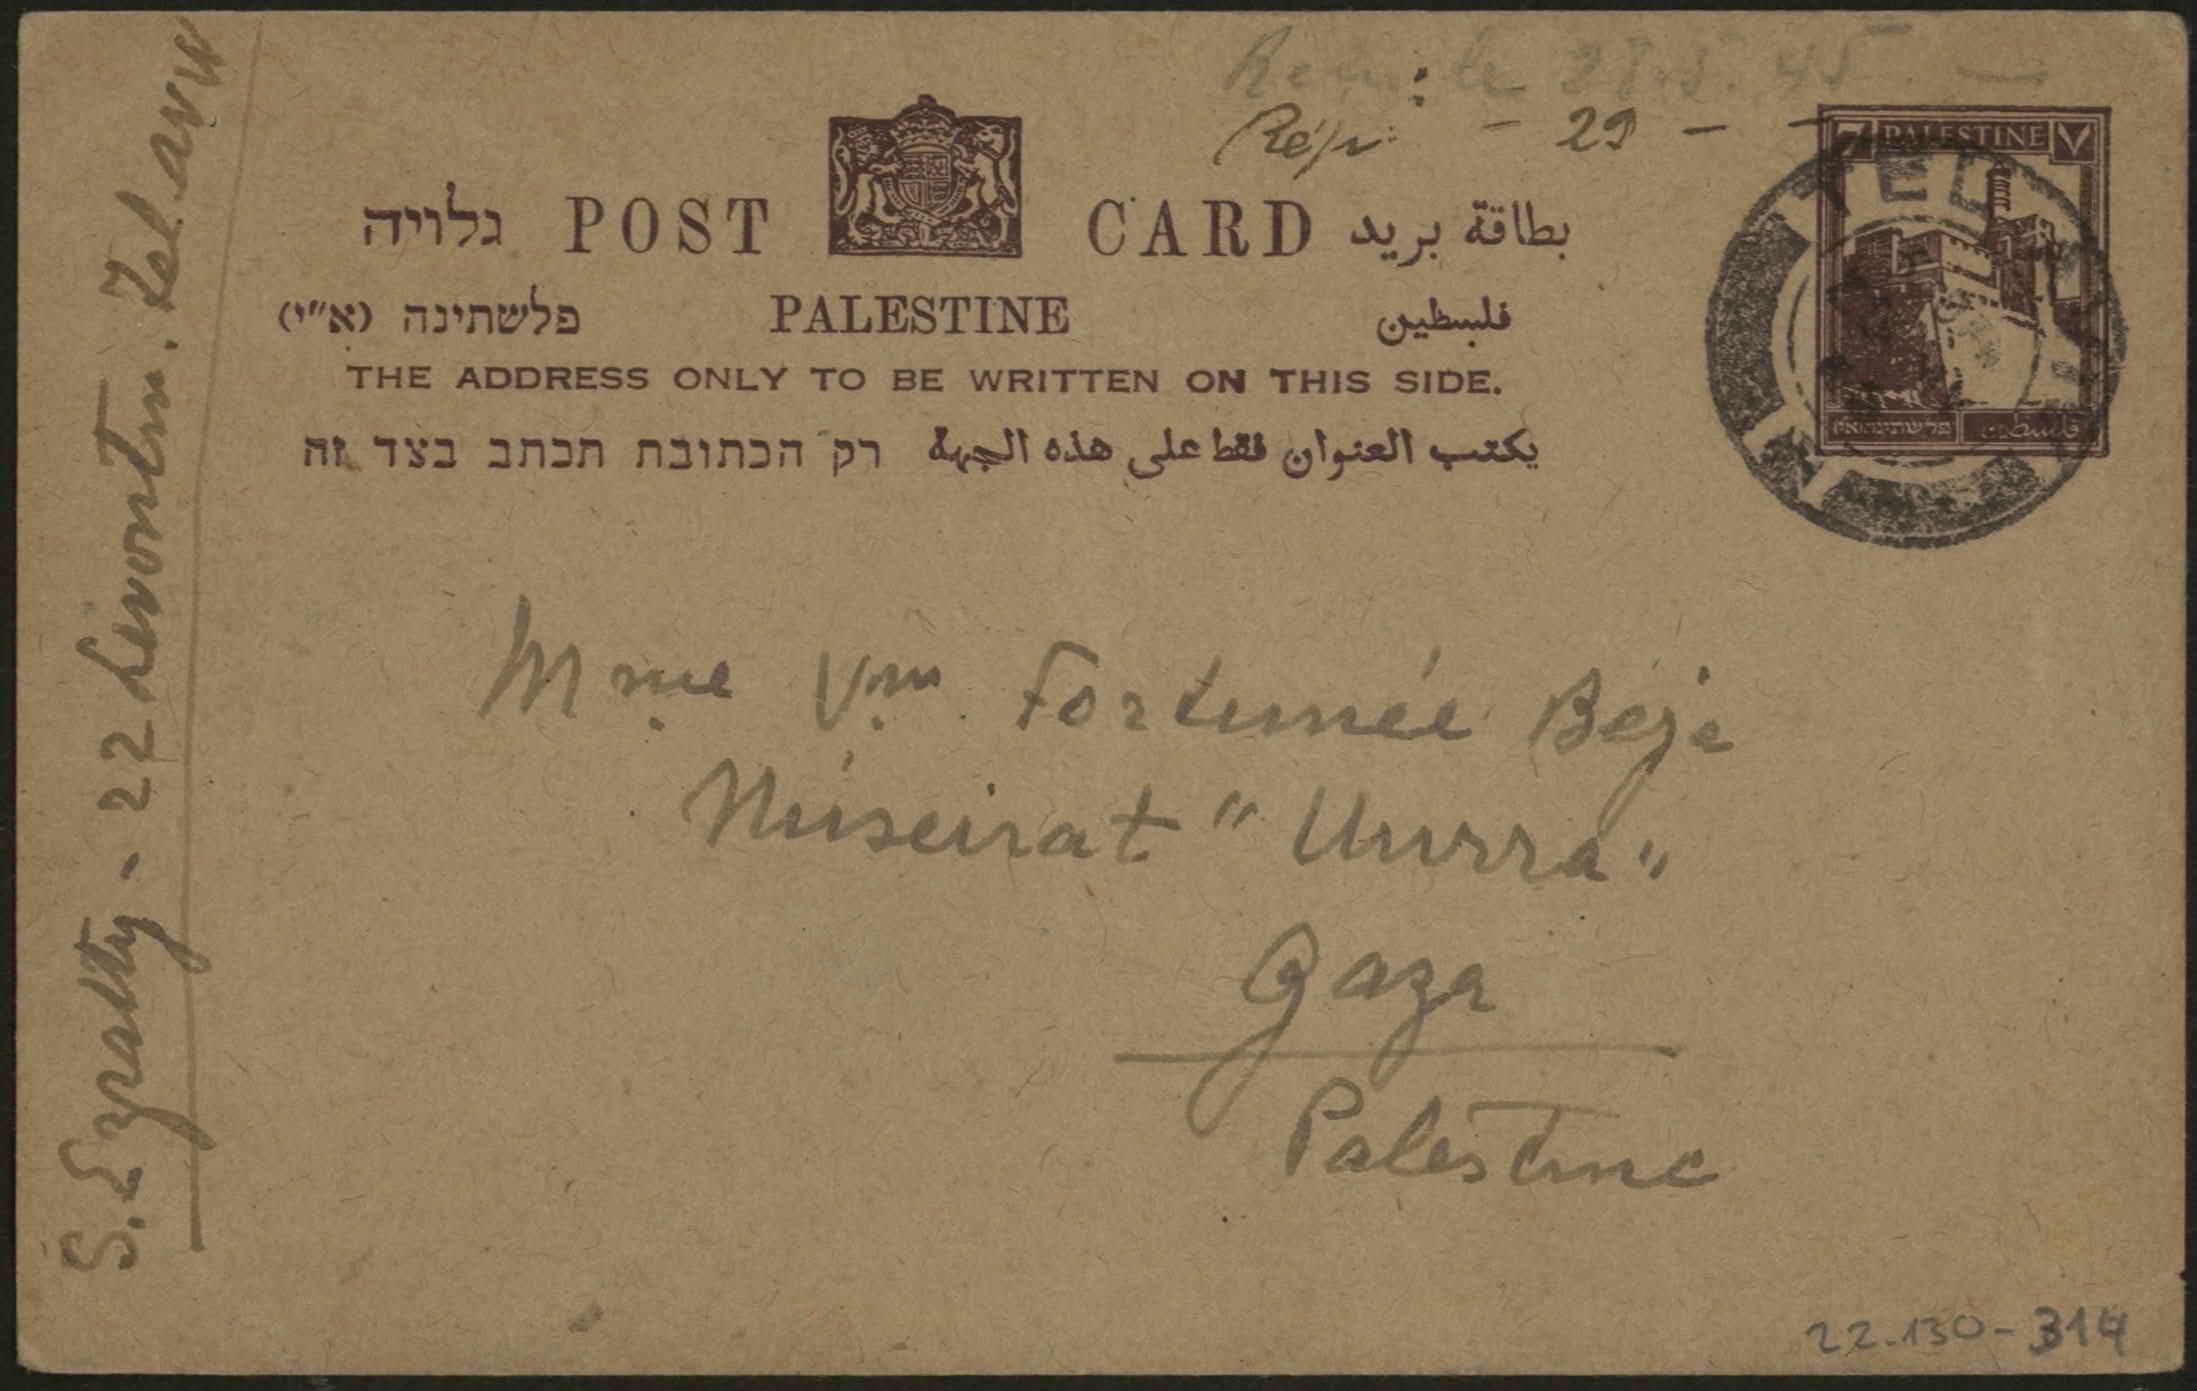 28.5.45
Rép: - 29 -
גלויה POST CARD بطاقة بريد
פלשתינה (א"י) PALESTINE فلسطين
THE ADDRESS ONLY TO BE WRITTEN ON THIS SIDE.
רק הכתובת תכתב בצד זה يكتب العنوان فقط على هذه الجهة
7 PALESTINE ٧
פלשתינה א״י فلسطين
TEL AVIV
Mme Vve Fortunée Béja
Nuseirat "
Gaza
Palestine
S. Ezratty - 22 Levontin. Tel aviv
22-130-314